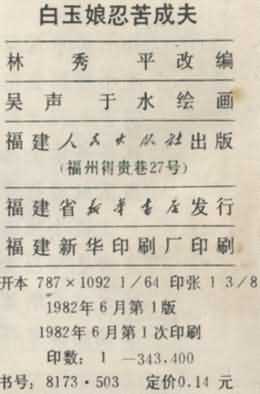 白玉娘忍苦成夫
林秀平改编
吴声于水绘画
福建人民出版社出版
(福州得贵巷27号)
福建省新华书店发行
福建新华印刷厂印刷
开本 787×1092 1/64 印张 1 3/8
1982年6月第1版
1982年6月第1次印刷
印数: 1 —343.400
书号: 8173·503 定价0.14 元